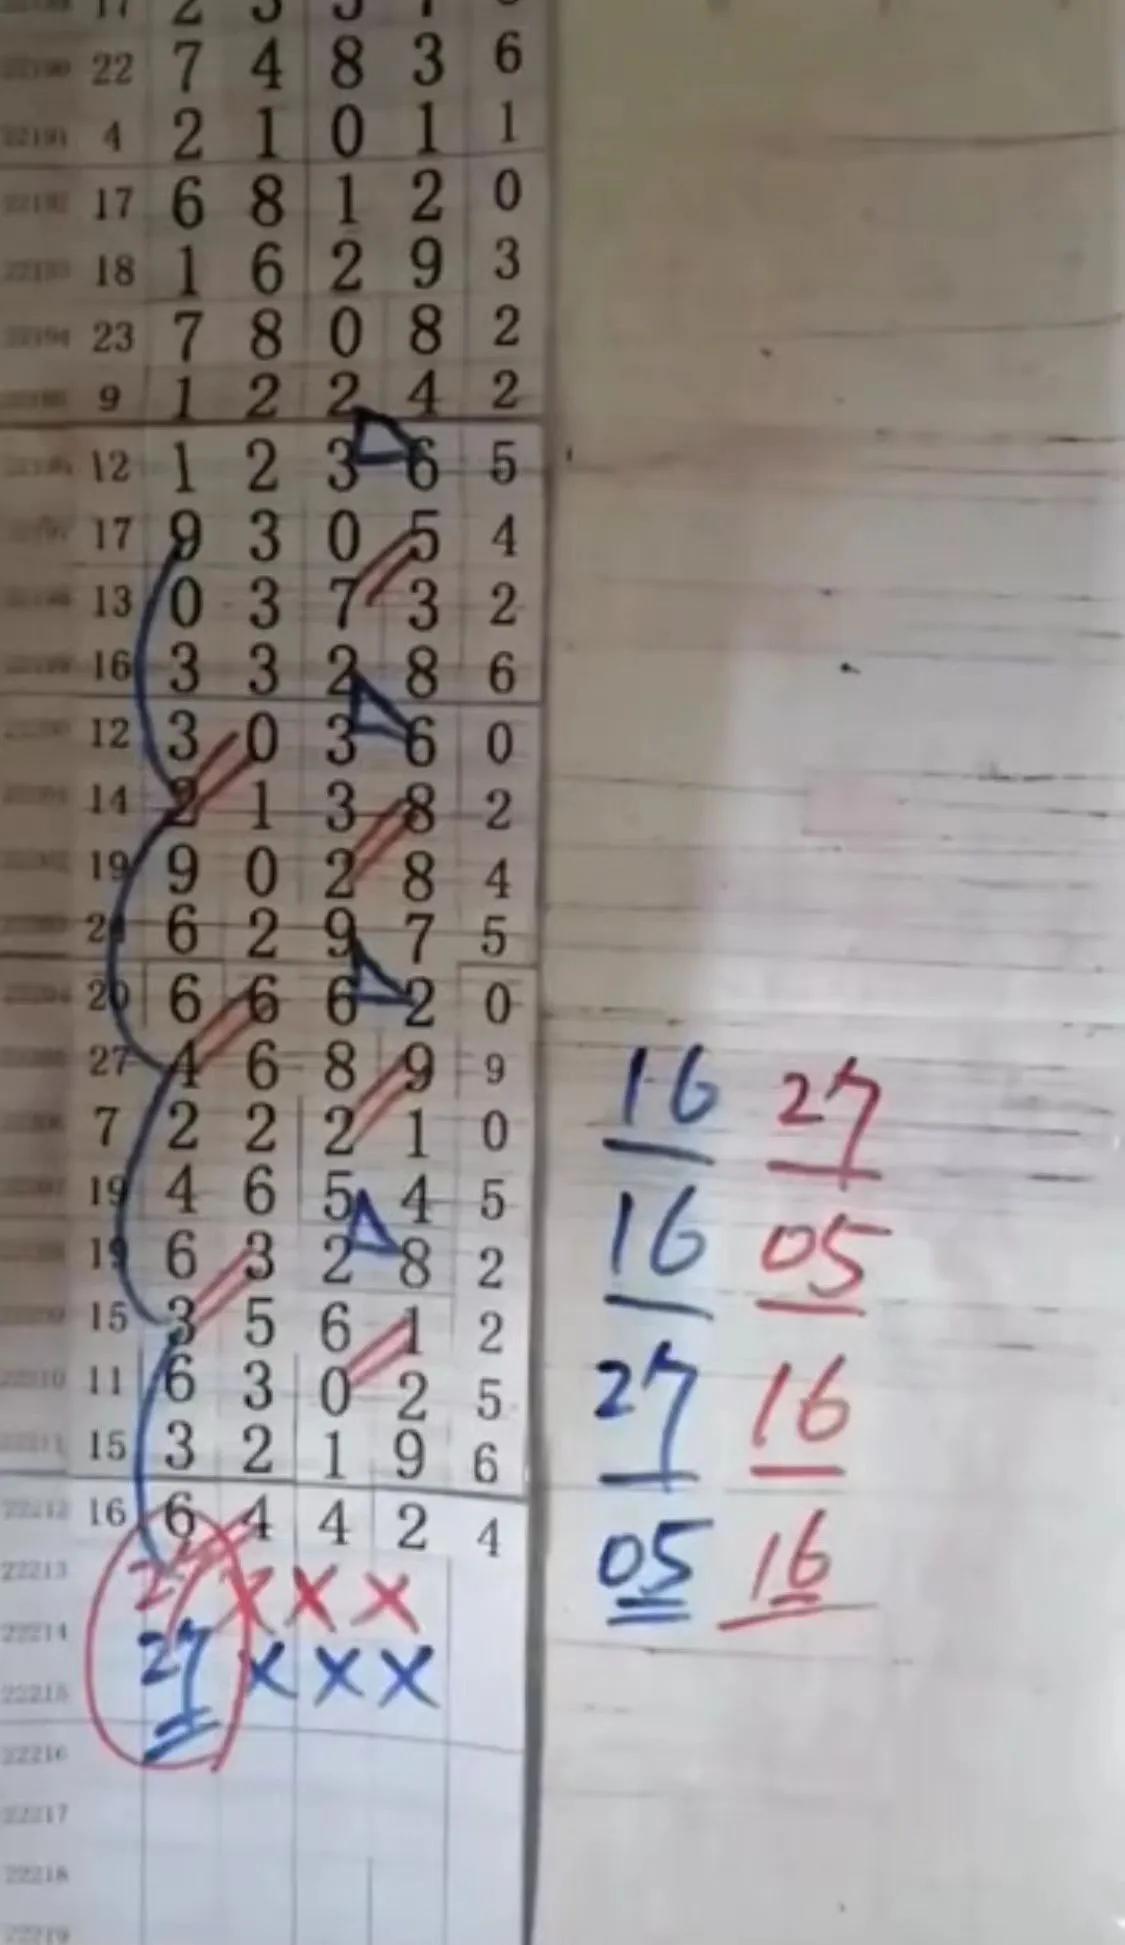 22190 22 7 4 8 3 6
22191 4 2 1 0 1 1
22192 17 6 8 1 2 0
22193 18 1 6 2 9 3
22194 23 7 8 0 8 2
9 1 2 2 4 2
12 1 2 3 6 5
17 9 3 0 5 4
13 0 3 7 3 2
16 3 3 2 8 6
12 3 0 3 6 0
14 2 1 3 8 2
19 9 0 2 8 4
6 2 9 7 5
20 6 6 6 2 0
27 4 6 8 9 9
7 2 2 2 1 0
19 4 6 5 4 5
19 6 3 2 8 2
15 3 5 6 1 2
22210 11 6 3 0 2 5
22211 15 3 2 1 9 6
22212 16 6 4 4 2 4
22213 X X X
22214 27 X X X
22215
22216
22217
22218
22219
16 27
16 05
27 16
05 16